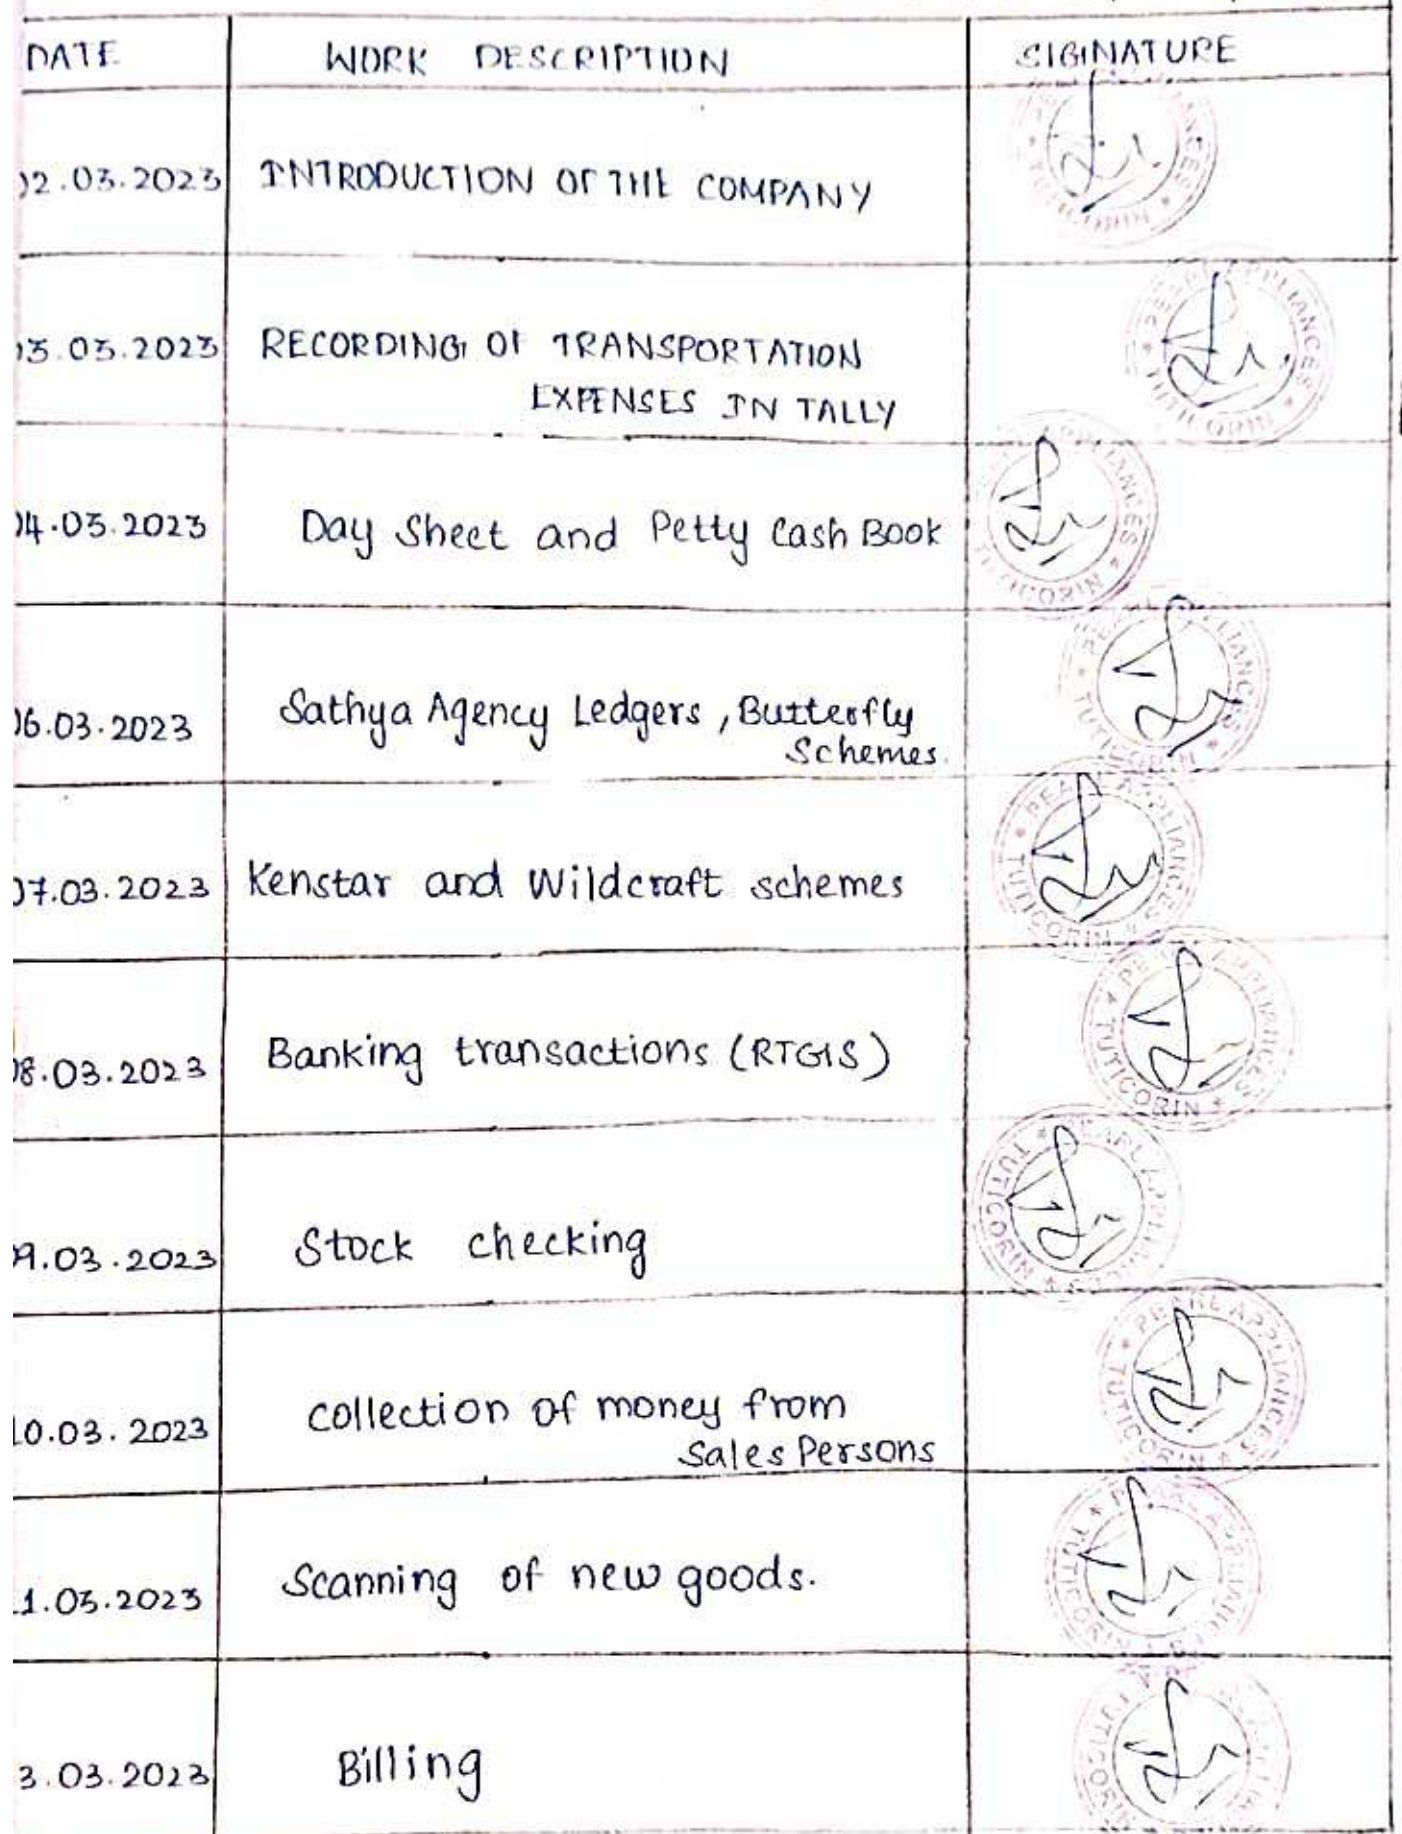 DATE WORK DESCRIPTION SIGINATURE
02.03.2023 INTRODUCTION OF THE COMPANY
PEARL APPLIANCES * TUTICORIN *
03.03.2023 RECORDING OF TRANSPORTATION
EXPENSES IN TALLY
PEARL APPLIANCES * TUTICORIN *
04.03.2023 Day Sheet and Petty Cash Book
APPLIANCES * TUTICORIN
06.03.2023 Sathya Agency Ledgers, Butterfly
Schemes.
PEARL APPLIANCES * TUTICORIN *
07.03.2023 Kenstar and Wildcraft schemes
PEARL APPLIANCES * TUTICORIN *
08.03.2023 Banking transactions (RTGS)
PEARL APPLIANCES * TUTICORIN *
09.03.2023 Stock checking
PEARL APPLIANCES * TUTICORIN *
10.03.2023 collection of money from
Sales Persons
PEARL APPLIANCES * TUTICORIN *
11.03.2023 Scanning of new goods.
PEARL APPLIANCES * TUTICORIN *
3.03.2023 Billing
TUTICORIN